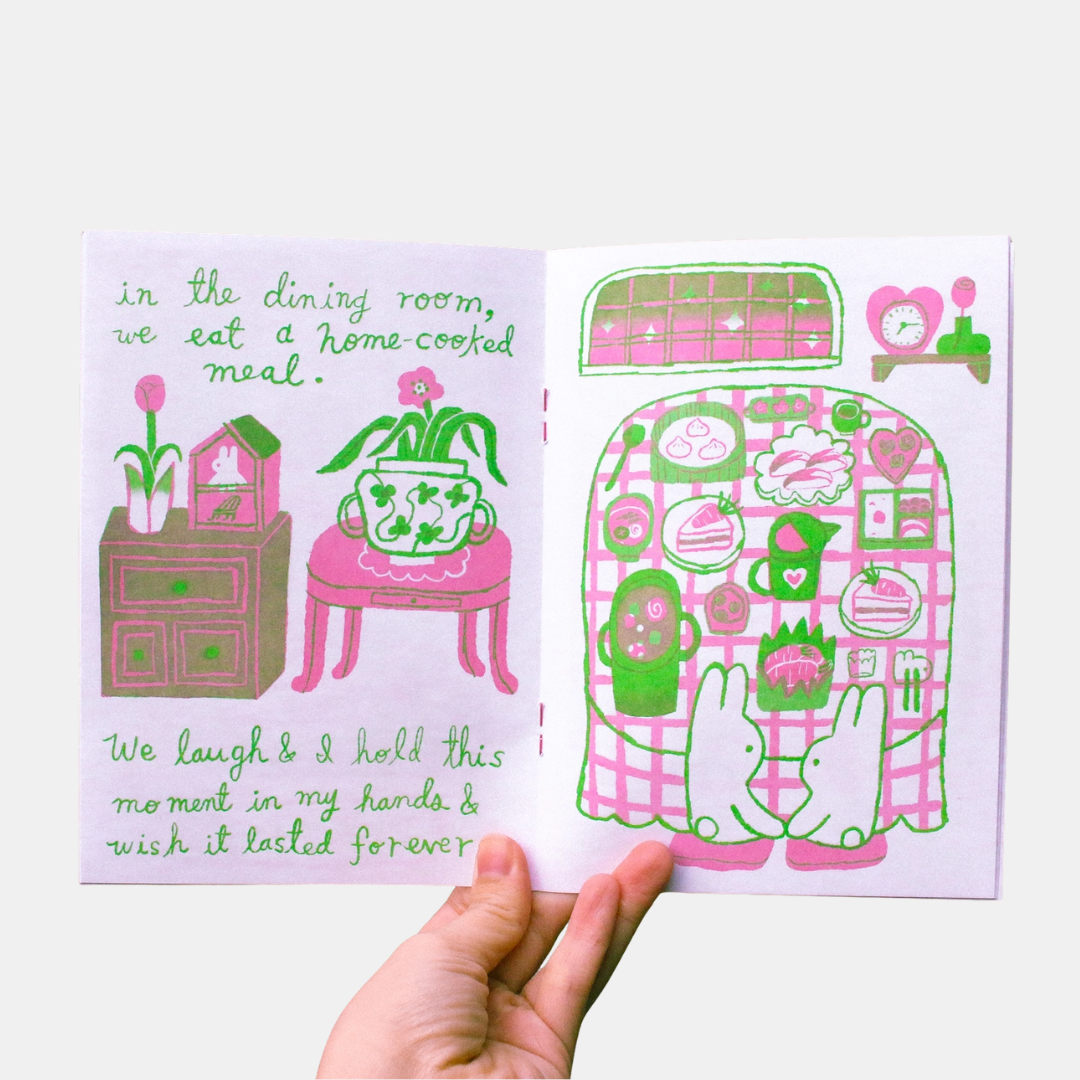 in the dining room,
we eat a home-cooked
meal.
We laugh & I hold this
moment in my hands &
wish it lasted forever